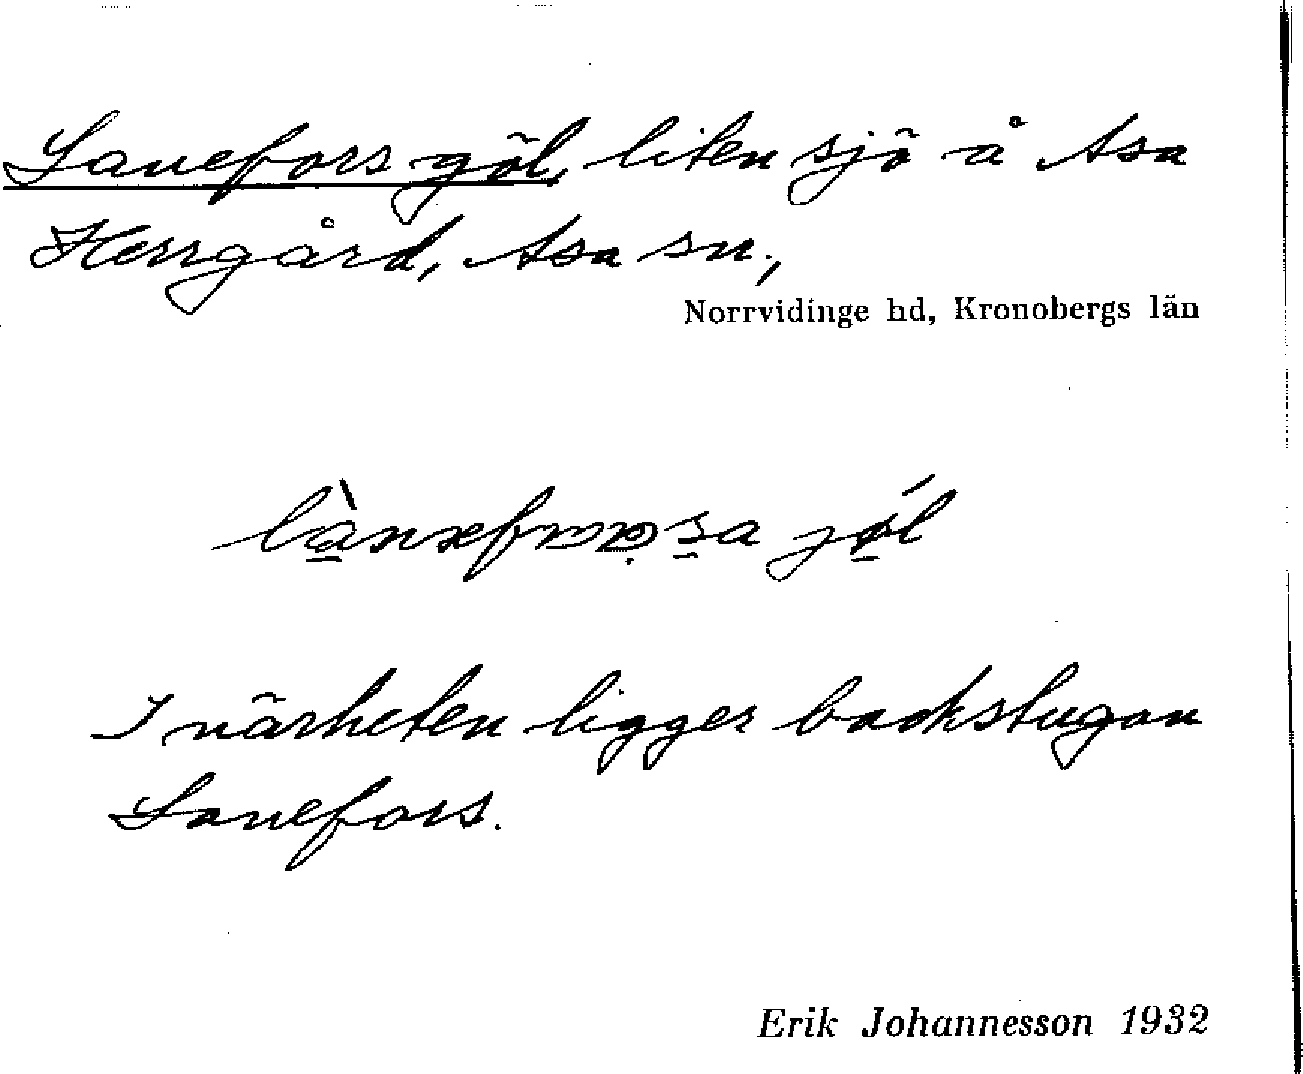 Lanefors göl, liten sjö å Asa
Herrgård, Asa sn.,
Norrvidinge hd, Kronobergs län
I närheten ligger backstugan
Lanefors.
Erik Johannesson 1932